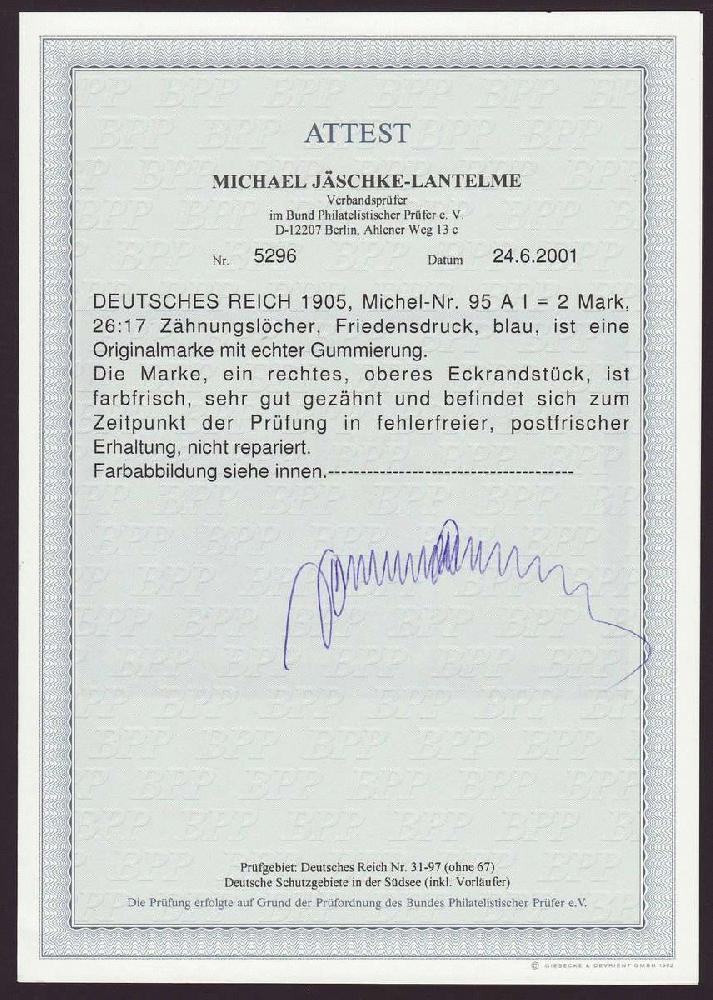 ATTEST
MICHAEL JÄSCHKE-LANTELME
Verbandsprüfer
im Bund Philatelistischer Prüfer e. V.
D-12207 Berlin, Ahlener Weg 13 c
Nr. 5296 Datum 24.6.2001
DEUTSCHES REICH 1905, Michel-Nr. 95 A I = 2 Mark,
26:17 Zähnungslöcher, Friedensdruck, blau, ist eine
Originalmarke mit echter Gummierung.
Die Marke, ein rechtes, oberes Eckrandstück, ist
farbfrisch, sehr gut gezähnt und befindet sich zum
Zeitpunkt der Prüfung in fehlerfreier, postfrischer
Erhaltung, nicht repariert.
Farbabbildung siehe innen.-------------------------------------
Prüfgebiet: Deutsches Reich Nr. 31-97 (ohne 67)
Deutsche Schutzgebiete in der Südsee (inkl. Vorläufer)
Die Prüfung erfolgte auf Grund der Prüfordnung des Bundes Philatelistischer Prüfer e.V.
© GIESECKE & DEVRIENT GMBH